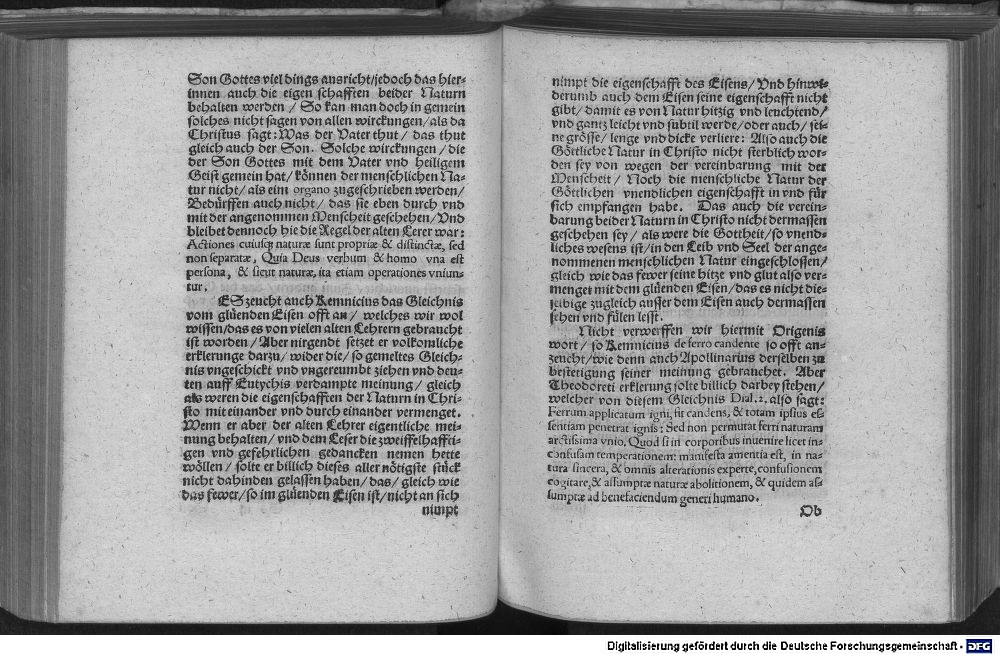 Son Gottes viel dings ausricht/jedoch das hier-
innen auch die eigen schafften beider Naturn
behalten werden / So kan man doch in gemein
solches nicht sagen von allen wirckungen/als da
Christus sagt: Was der Vater thut / das thut
gleich auch der Son. Solche wirckungen / die
der Son Gottes mit dem Vater vnd heiligem
Geist gemein hat/ können der menschlichen Na-
tur nicht/ als eim organo zugeschrieben werden/
Bedürffen auch nicht / das sie eben durch vnd
mit der angenommen Menscheit geschehen/ Vnd
bleibet dennoch hie die Regel der alten Lerer war:
Actiones cuiusq; naturæ sunt propriæ & distinctæ, sed
non separatæ, Quia Deus verbum & homo vna est
persona, & sicut naturæ, ita etiam operationes vniun-
tur.
ES zeucht auch Kemnicius das Gleichnis
vom glüenden Eisen offt an / welches wir wol
wissen/das es von vielen alten Lehrern gebraucht
ist worden / Aber nirgendt setzet er volkomliche
erklerunge darzu/ wider die/ so gemeltes Gleich-
nis vngeschickt vnd vngereumbt ziehen vnd deu-
ten auff Eutychis verdampte meinung/ gleich
als weren die eigenschafften der Naturn in Chri-
sto mit einander vnd durch einander vermenget.
Wenn er aber der alten Lehrer eigentliche mei-
nung behalten/ vnd dem Leser die zweiffelhaffti-
gen vnd gefehrlichen gedancken nemen hette
wöllen / solte er billich dieses aller nötigste stück
nicht dahinden gelassen haben/ das/ gleich wie
das fewer/ so im glüenden Eisen ist/ nicht an sich
nimpt
nimpt die eigenschafft des Eisens/ Vnd hinwi-
derumb auch dem Eisen seine eigenschafft nicht
gibt/ damit es von Natur hitzig vnd leuchtend/
vnd gantz leicht vnd subtil werde/ oder auch/ sei-
ne grösse/ lenge vnd dicke verliere: Also auch die
Göttliche Natur in Christo nicht sterblich wor-
den sey von wegen der vereinbarung mit der
Menscheit / Noch die menschliche Natur der
Göttlichen vnendlichen eigenschafft in vnd für
sich empfangen habe. Das auch die verein-
barung beider Naturn in Christo nicht dermassen
geschehen sey / als were die Gottheit/ so vnend-
liches wesens ist/ in den Leib vnd Seel der ange-
nommenen menschlichen Natur eingeschlossen/
gleich wie das fewer seine hitze vnd glut also ver-
menget mit dem glüenden Eisen/ das es nicht die-
selbige zugleich ausser dem Eisen auch dermassen
sehen vnd fülen lesst.
Nicht verwerffen wir hiermit Origenis
wort/ so Kemnicius de ferro candente so offt an-
zeucht/ wie denn auch Apollinarius derselben zu
bestetigung seiner meinung gebrauchet. Aber
Theodoreti erklerung solte billich darbey stehen/
welcher von diesem Gleichnis Dial. 2. also sagt:
Ferrum applicatum igni, fit candens, & totam ipsius es-
sentiam penetrat ignis: Sed non permutat ferri naturam
arctissima vnio. Quod si in corporibus inuenire licet in-
confusam temperationem: manifesta amentia est, in na-
tura sincera, & omnis alterationis experte, confusionem
cogitare, & assumptæ naturæ abolitionem, & quidem as-
sumptæ ad benefaciendum generi humano.
Ob
Digitalisierung gefördert durch die Deutsche Forschungsgemeinschaft - DFG